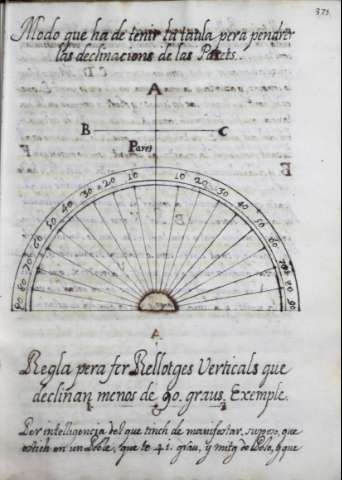 373.
Modo que ha de tenir la taula pera pendrer
las declinacions de las Parets.
A
B C
Paret
90 80 70 60 50 40 30 20 10 10 20 30 40 50 60 70 80 90
A
Regla pera fer Rellotges Verticals que
declinan menos de 90. graus. Exemple.
Per intelligencia del que tinch de manifestar, suposo, que
estich en un Poble, que te 41. grau, y mitg de Polo, y que